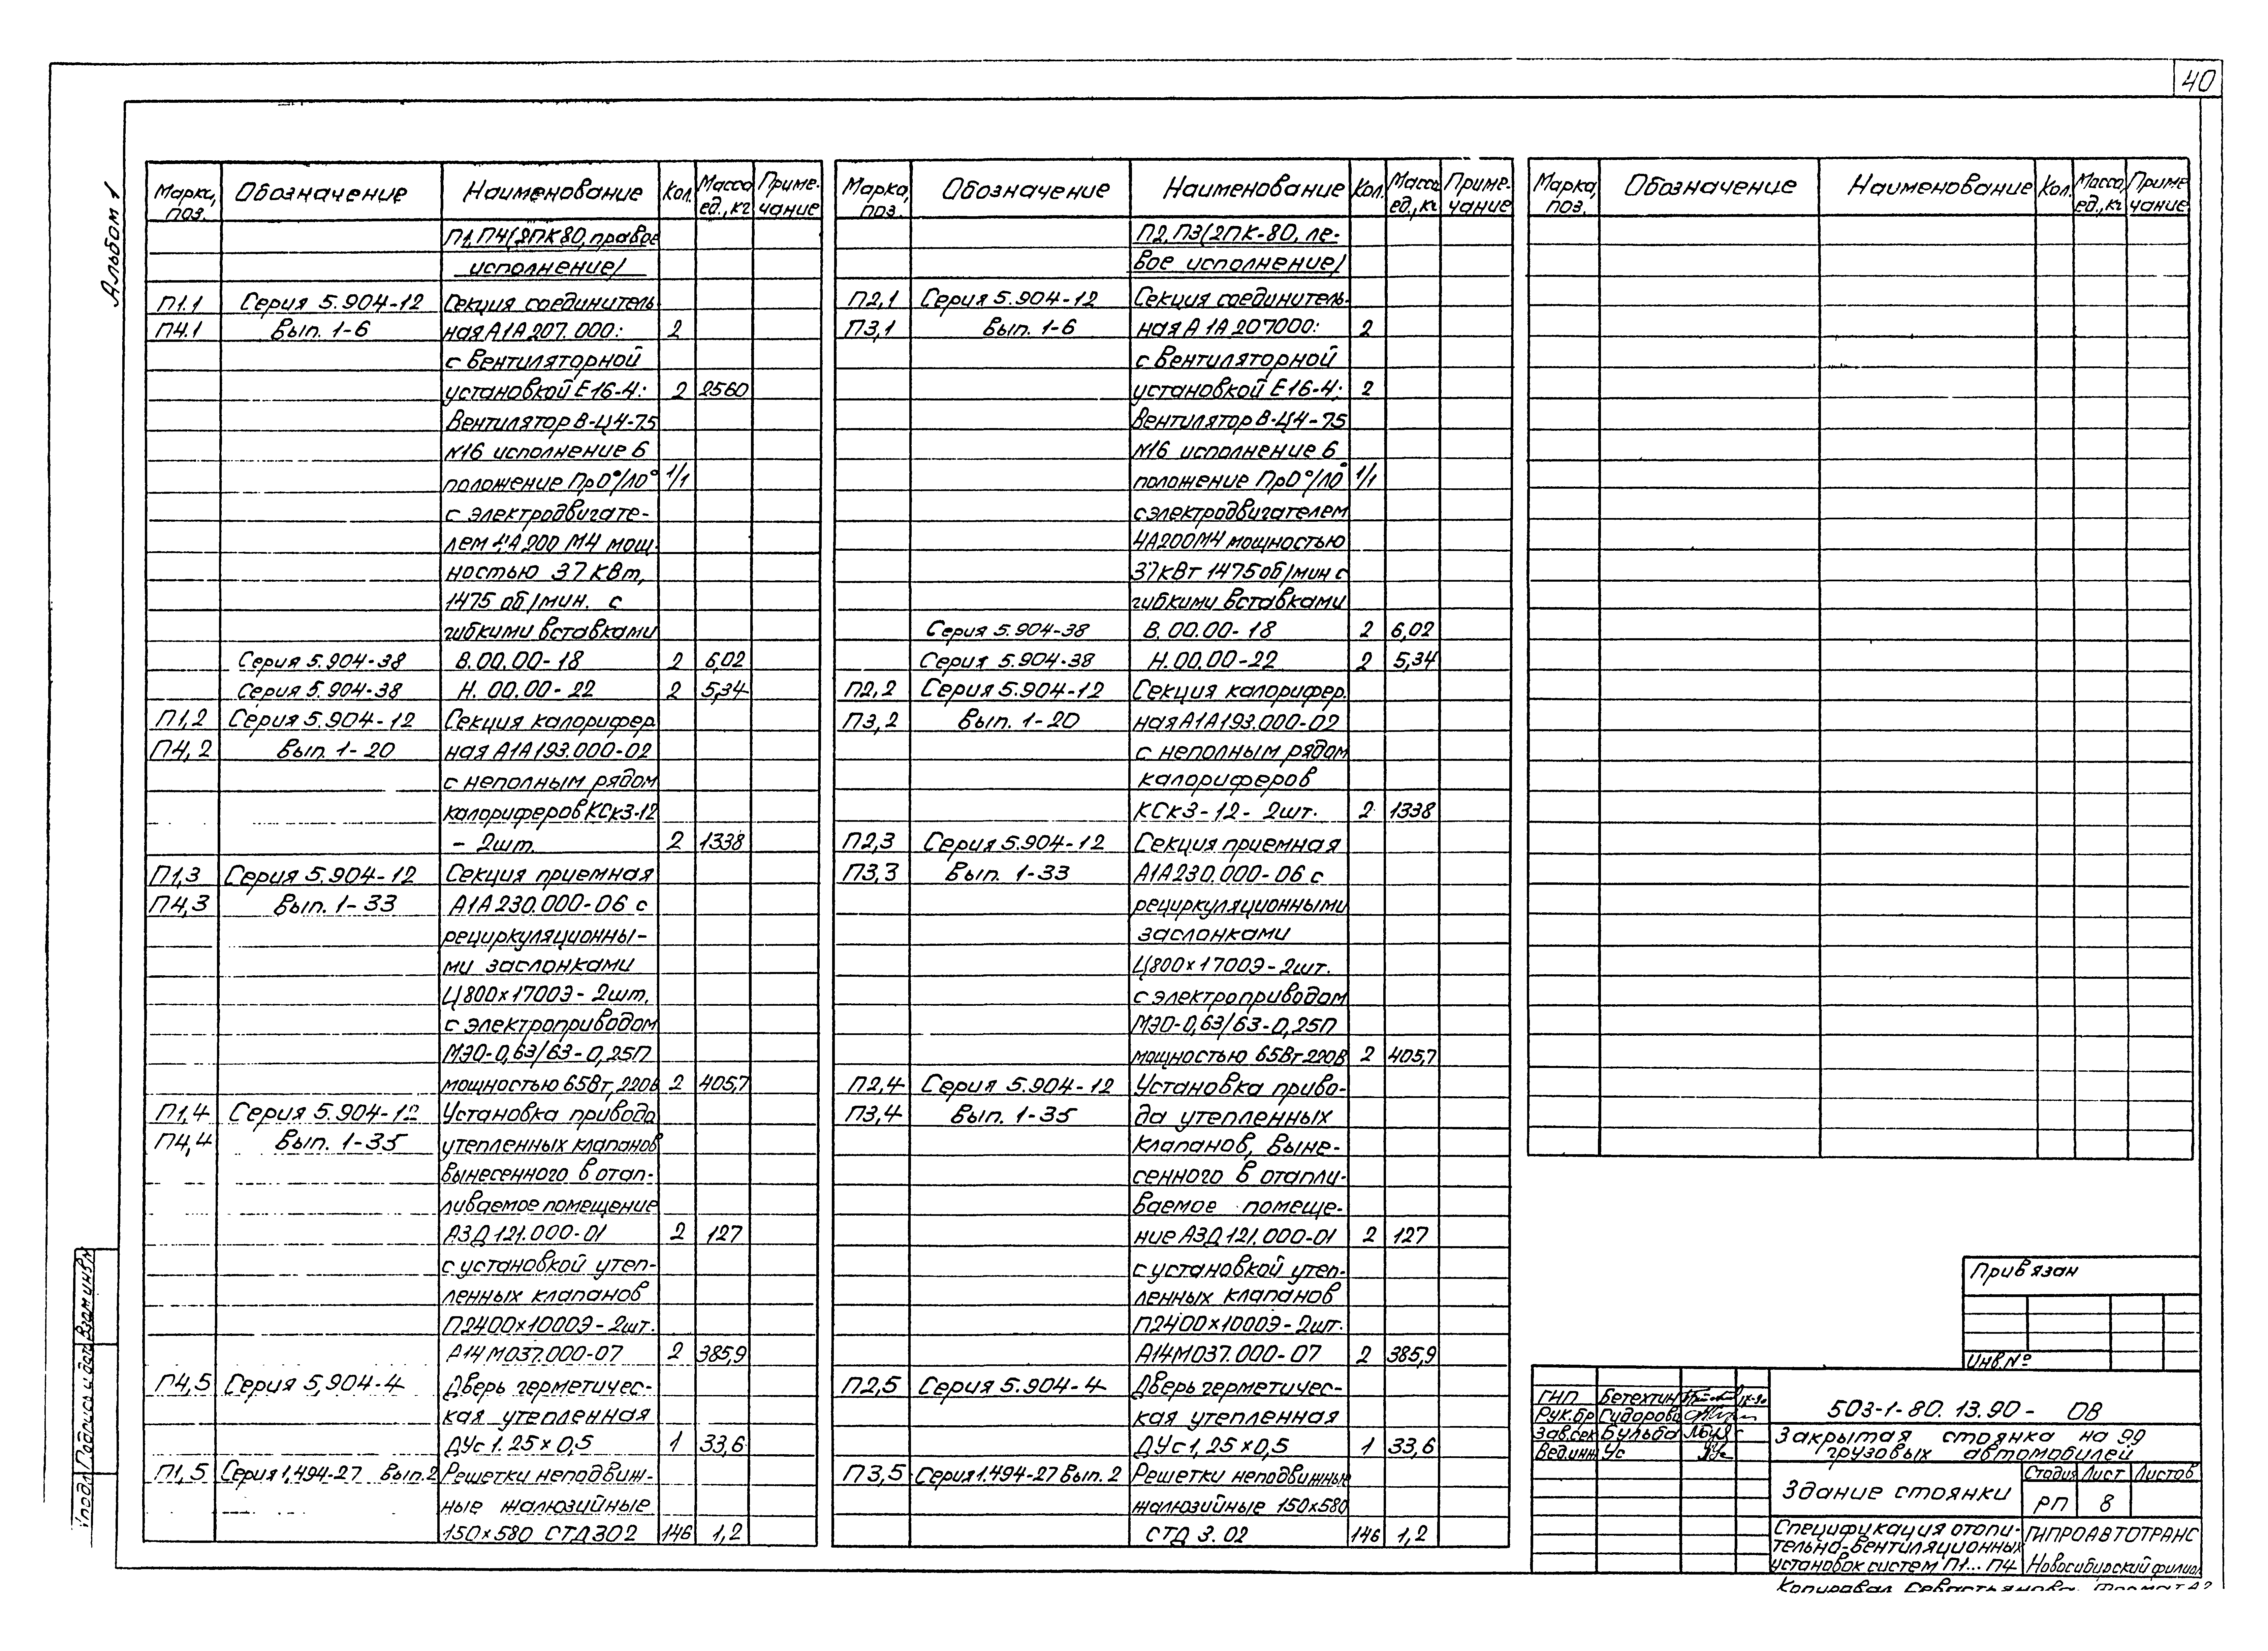 40
Альбом 1
Марка, поз. Обозначение Наименование Кол. Масса ед., кг Приме-чание
П1, П4 (2ПК80, правое
исполнение)
П1.1 Серия 5.904-12 Секция соединитель-
П4.1 Вып. 1-6 ная А1А 207.000: 2
с вентиляторной
установкой Е16-4: 2 2560
Вентилятор В-Ц4-75
№16 исполнение 6
положение Пр0°/Л0° 1/1
с электродвигате-
лем 4А200 М4 мощ-
ностью 37 кВт,
1475 об/мин. с
гибкими вставками
Серия 5.904-38 В.00.00-18 2 6,02
Серия 5.904-38 Н.00.00-22 2 5,34
П1,2 Серия 5.904-12 Секция калорифер-
П4,2 Вып. 1-20 ная А1А193.000-02
с неполным рядом
калориферов КСк3-12
- 2шт. 2 1338
П1,3 Серия 5.904-12 Секция приемная
П4,3 Вып. 1-33 А1А230.000-06 с
рециркуляционны-
ми заслонками
Ц800х1700Э-2шт.
с электроприводом
МЭО-0,63/63-0,25П
мощностью 65Вт,220в 2 405,7
П1,4 Серия 5.904-12 Установка привода
П4,4 Вып. 1-35 утепленных клапанов
вынесенного в отап-
ливаемое помещение
А3Д121.000-01 2 127
с установкой утеп-
ленных клапанов
П2400х1000Э-2шт.
А14М037.000-07 2 385,9
П4,5 Серия 5,904-4 Дверь герметичес-
кая утепленная
ДУс 1.25х0,5 1 33,6
П1,5 Серия 1.494-27 Вып.2 Решетки неподвиж-
ные жалюзийные
150х580 СТД302 146 1,2
Марка, поз. Обозначение Наименование Кол. Масса ед., кг Приме-чание
П2, П3 (2ПК-80, ле-
вое исполнение)
П2,1 Серия 5.904-12 Секция соединитель-
П3,1 Вып. 1-6 ная А1А 207000: 2
с вентиляторной
установкой Е16-4: 2
Вентилятор В-Ц4-75
№16 исполнение 6
положение Пр0°/Л0° 1/1
с электродвигателем
4А200М4 мощностью
37кВт 1475об/мин с
гибкими вставками
Серия 5.904-38 В.00.00-18 2 6,02
Серия 5.904-38 Н.00.00-22 2 5,34
П2,2 Серия 5.904-12 Секция калорифер.
П3,2 Вып. 1-20 ная А1А193.000-02
с неполным рядом
калориферов
КСк3-12- 2шт. 2 1338
П2,3 Серия 5.904-12 Секция приемная
П3,3 Вып. 1-33 А1А230.000-06 с
рециркуляционными
заслонками
Ц800х1700Э-2шт.
с электроприводом
МЭО-0,63/63-0,25П
мощностью 65Вт 220в 2 405,7
П2,4 Серия 5.904-12 Установка приво-
П3,4 Вып. 1-35 да утепленных
клапанов, выне-
сенного в отапли-
ваемое помеще-
ние А3Д121.000-01 2 127
с установкой утеп-
ленных клапанов
П2400х1000Э-2шт.
А14М037.000-07 2 385,9
П2,5 Серия 5.904-4 Дверь герметичес-
кая утепленная
ДУс1,25х0,5 1 33,6
П3,5 Серия 1.494-27 Вып.2 Решетки неподвижные
жалюзийные 150х580
СТД 3.02 146 1,2
Марка, поз. Обозначение Наименование Кол. Масса ед., кг Приме-чание
Привязан
Инв.№
ГИП Бетехтин
Рук.бр Гудорова
Зав.сек Бульба
Вед.инж Ус
503-1-80.13.90- ОВ
Закрытая стоянка на 99
грузовых автомобилей
Здание стоянки
Стадия Лист Листов
РП 8
Спецификация отопи-
тельно-вентиляционных
установок систем П1...П4
ГИПРОАВТОТРАНС
Новосибирский филиал
Копировал Севастьянова. Формат А2
подл. Подпись и дата Взам инв.№